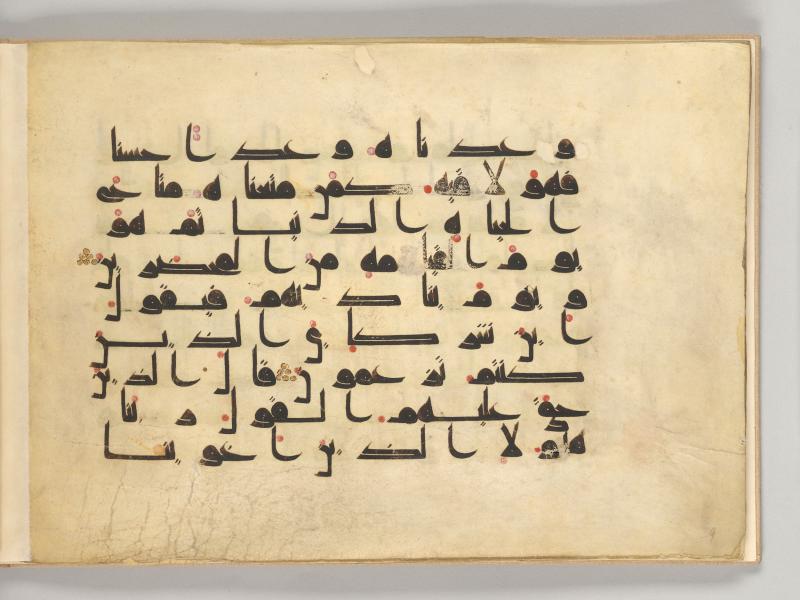 وعدناه وعدا حسنا
فهو لاقيه كمن متعناه متاع
الحياه الدنيا ثم هو
يوم القيامه من المحضرين
ويوم يناديهم فيقول
اين شركاي الذين
كنتم تزعمون قال الذين
حق عليهم القول ربنا
هولا الذين اغوينا